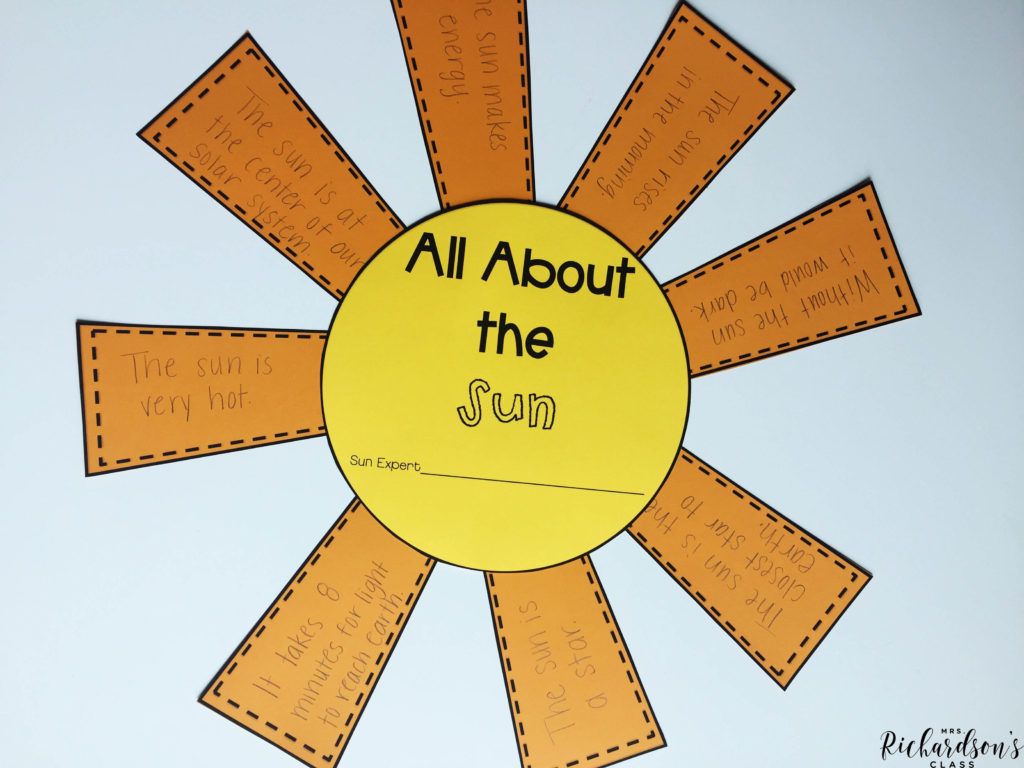 All About
the
Sun
Sun Expert
he sun makes
energy.
The sun rises
in the morning.
Without the sun
it would be dark.
The sun is the
closest star to
earth.
The sun is
a star.
It takes 8
minutes for light
to reach Earth.
The sun is
very hot.
The sun is at
the center of our
solar system.
MRS.
Richardson's
CLASS